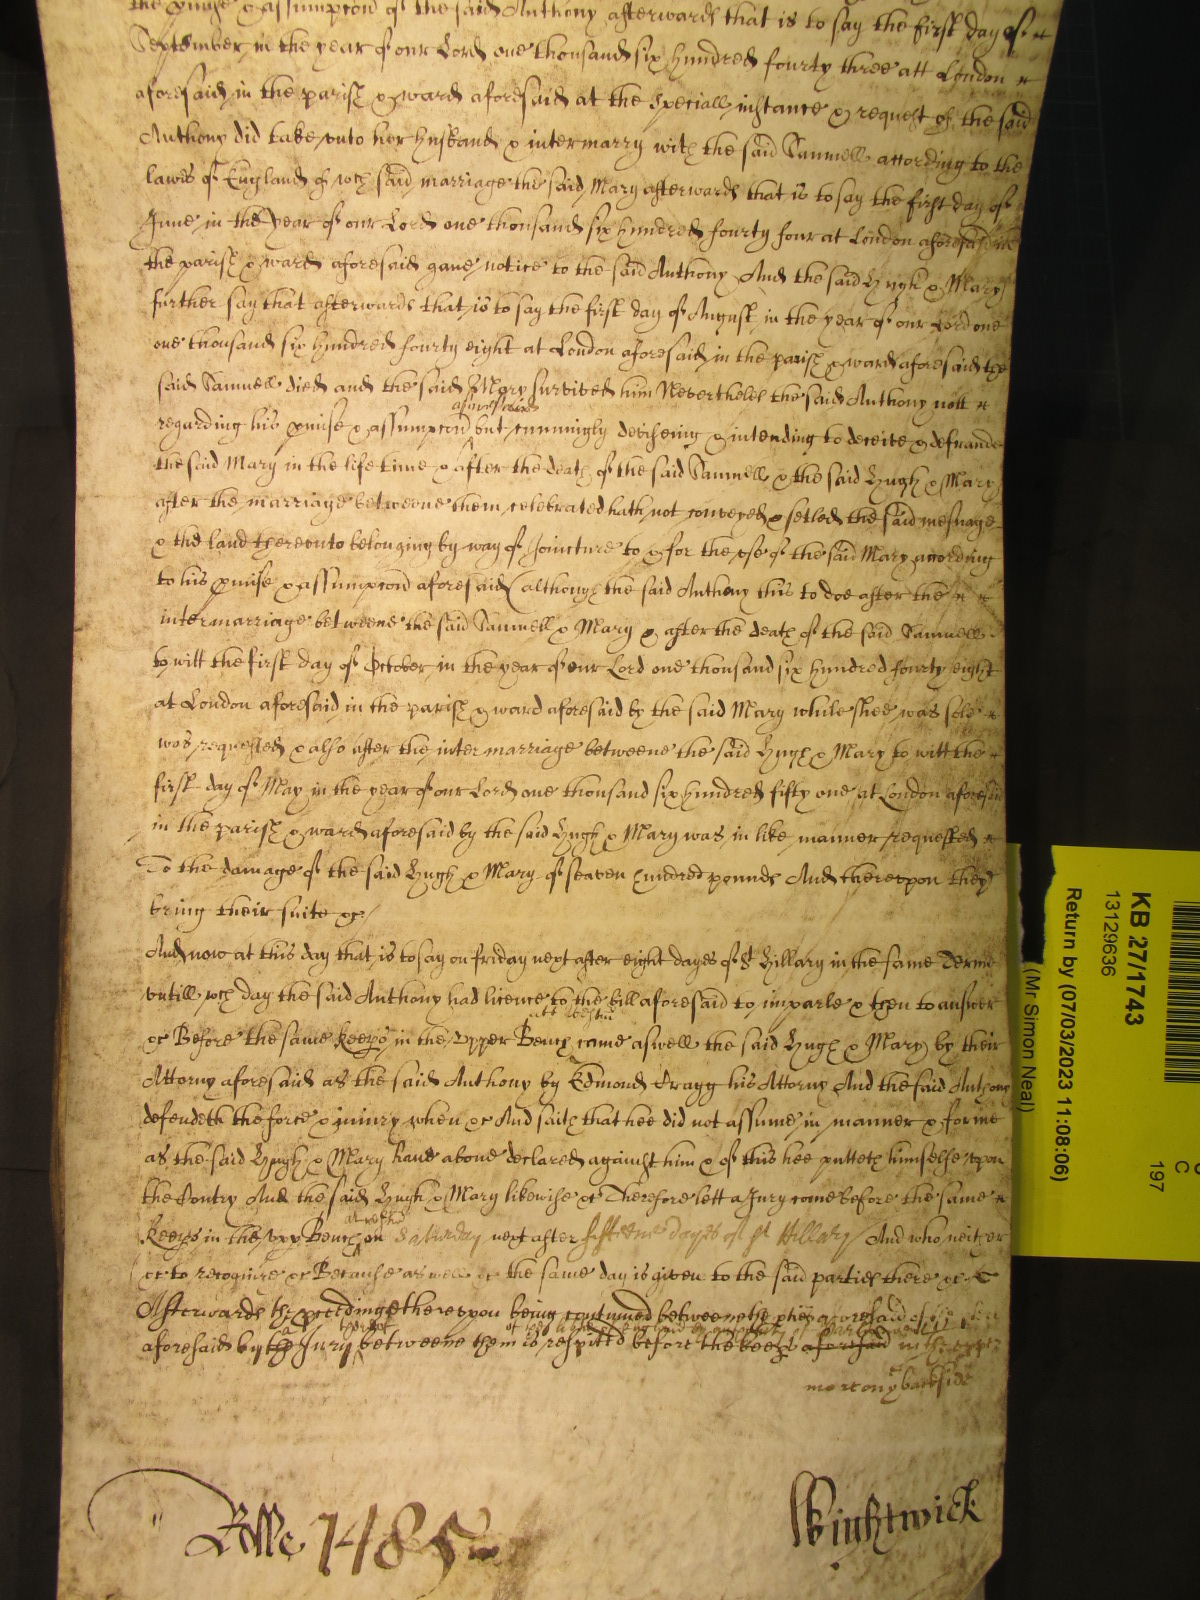 the p'mise & assumpcon of the said Anthony afterwards that is to say the first day of
September in the year of our Lord one thousand six hundred fourty three att London
aforesaid in the parish & ward aforesaid at the speciall instance & request of the said
Anthony did take unto her husband & intermarry with the said Samuell according to the
lawes of England of wch said marriage the said Mary afterwards that is to say the first day of
June in the year of our Lord one thousand six hundred fourty four at London aforesaid in
the parish & ward aforesaid gave notice to the said Anthony And the said Hugh & Mary
further say that afterwards that is to say the first day of August in the year of our Lord one
one thousand six hundred fourty eight at London aforesaid in the parish & ward aforesaid the
said Samuell died and the said Mary survived him Neverthelesse the said Anthony nott
regarding his p'mise & assumpcon aforesaid but cunningly deviseing & intending to deceive & defraude
the said Mary in the life time & after the death of the said Samuell & the said Hugh & Mary
after the marriage betweene them celebrated hath not conveyed & setled the said mesuage
& the land thereunto belonging by way of Joincture to & for the use of the said Mary according
to his p'mise & assumpcon aforesaid (although the said Anthony this to doe after the
intermarriage betweene the said Samuell & Mary & after the death of the said Samuell
to witt the first day of October in the year of our Lord one thousand six hundred fourty eight
at London aforesaid in the parish & ward aforesaid by the said Mary while shee was sole
was requested & also after the inter marriage betweene the said Hugh & Mary to witt the
first day of May in the year of our Lord one thousand six hundred fifty one at London aforesaid
in the parish & ward aforesaid by the said Hugh & Mary was in like manner requested
To the damage of the said Hugh & Mary of seaven hundred pounds And thereupon they
bring their suite &c/
And now at this day that is to say on friday next after eight dayes of St Hillary in the same Terme
untill wch day the said Anthony had licence to the bill aforesaid to imparle & then to answer
&c Before the same keeps in the Upper Bench att Westm came aswell the said Hugh & Mary by their
Attorny aforesaid as the said Anthony by Edmond Cragg his Attorny And the said Anthony
defendeth the force & iniury when &c And saith that hee did not assume in manner & forme
as the said Hugh & Mary have above declared against him & of this hee putteth himselfe upon
the Contry And the said Hugh & Mary likewise &c Therefore lett a Jury come before the same
keeps in the upp Bench at westm on Saturday next after fifteene dayes of st Hillary And who neither
&c to recognize &c Because as well &c the same day is given to the said parties there &c
Afterwards the p'ceedings thereupon being continued betweene the pties aforesaid of the plea
aforesaid by the Jury thereof betweene them is respitted before the keeps aforesaid in the upper
more on ye backside
Rolle 1485
Wightwick
KB 27/1743
13129636
Return by (07/03/2023 11:08:06)
(Mr Simon Neal)
C
197